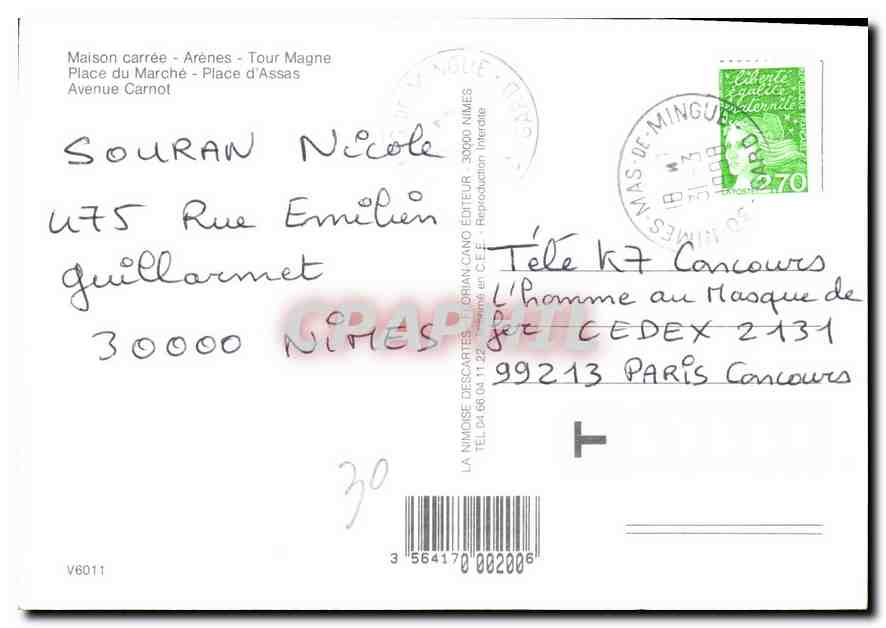 Maison carrée - Arènes - Tour Magne
Place du Marché - Place d'Assas
Avenue Carnot
SOURAN Nicole
475 Rue Emilien
guillarmet
30000 NîMES
30
V6011
LA NIMOISE DESCARTES - FLORIAN CANO ÉDITEUR - 30000 NIMES
TEL 04.66.04.11.22 - Imprimé en C.E.E. - Reproduction Interdite
3 564170 002006
liberté
égalité
fraternité
LA POSTE
2,70
30 NIMES-MAS-DE-MINGUE GARD
18 H
31-3
1998
Télé K7 Concours
L'homme au Masque de
fer CEDEX 2131
99213 PARIS Concours
T
CPAPHIL